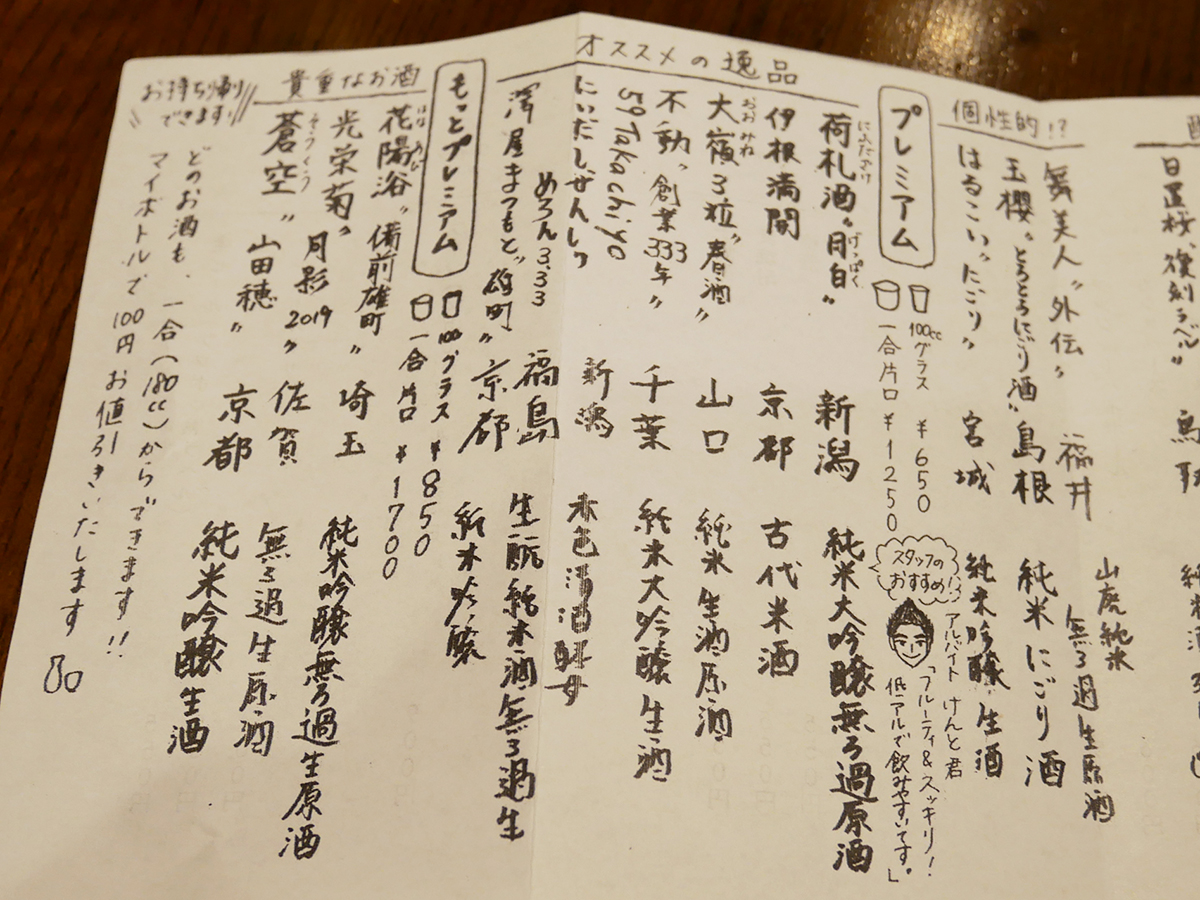 日置桜"復刻ラベル"
個性的!?
舞美人"外伝" 福井 山廃純米 無ろ過生原酒
玉櫻"とろとろにごり酒" 島根 純米にごり酒
はるこい"にごり" 宮城 純米吟醸生酒
プレミアム
100ccグラス ¥650
一合片口 ¥1250
スタッフのおすすめ!?
アルバイト けんと君
「フルーティ&スッキリ!
低アルで飲みやすいです。」
オススメの逸品
にふだざけ げっぱく
荷札酒"月白" 新潟 純米大吟醸無ろ過原酒
伊根満開 京都 古代米酒
おおみね
大嶺3粒"春酒" 山口 純米生酒原酒
不動"創業333年" 千葉 純米大吟醸生酒
59Takachiyo 新潟 赤色清酒酵母
にいだしぜんしゅ
めろん3.33 福島 生酛純米酒無ろ過生
澤屋まつもと"雄町" 京都 純米吟醸
もっとプレミアム
100グラス ¥850
一合片口 ¥1700
貴重なお酒
はな あび
花陽浴"備前雄町" 埼玉 純米吟醸無ろ過生原酒
光栄菊"月影2019" 佐賀 無ろ過生原酒
そうくう
蒼空"山田穂" 京都 純米吟醸生酒
お持ち帰りできます!!
どのお酒も、一合(180cc)からできます!!
マイボトルで100円お値引きいたします